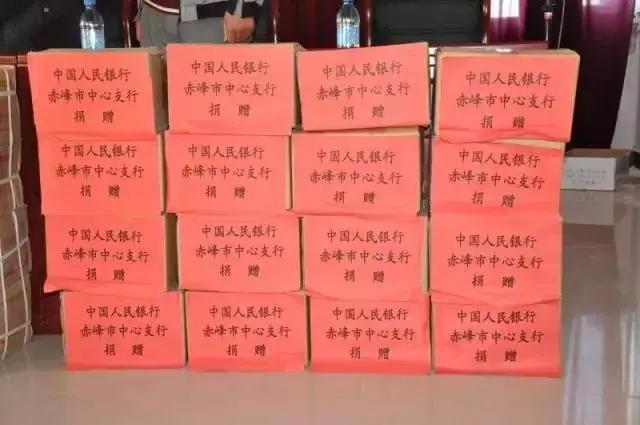 中国人民银行
赤峰市中心支行
捐 赠
中国人民银行
赤峰市中心支行
捐 赠
中国人民银行
赤峰市中心支行
捐 赠
中国人民银行
赤峰市中心支行
捐 赠
中国人民银行
赤峰市中心支行
捐 赠
中国人民银行
赤峰市中心支行
捐 赠
中国人民银行
赤峰市中心支行
捐 赠
中国人民银行
赤峰市中心支行
捐 赠
中国人民银行
赤峰市中心支行
捐 赠
中国人民银行
赤峰市中心支行
捐 赠
中国人民银行
赤峰市中心支行
捐 赠
中国人民银行
赤峰市中心支行
捐 赠
中国人民银行
赤峰市中心支行
捐 赠
中国人民银行
赤峰市中心支行
捐 赠
中国人民银行
赤峰市中心支行
捐 赠
中国人民银行
赤峰市中心支行
捐 赠